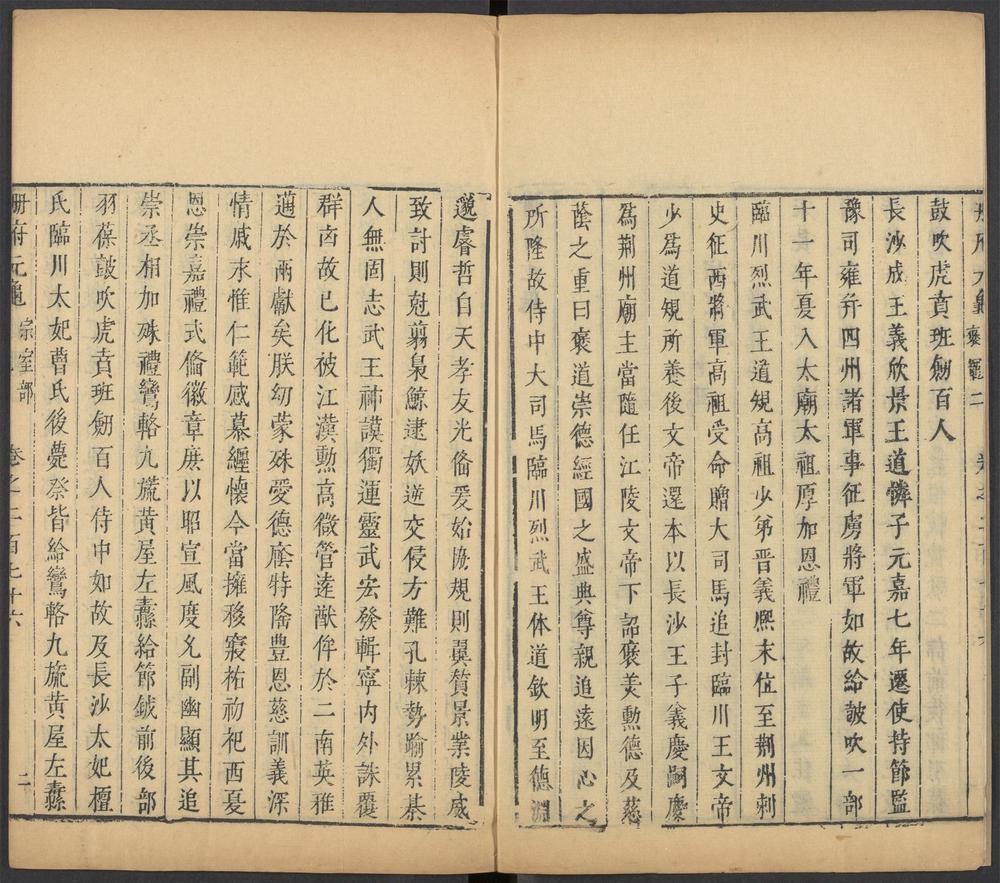 册府元龜 褒寵二 卷之二百七十六
鼓吹虎賁班劒百人
長沙成王義欣景王道憐子元嘉七年遷使持節監
豫司雍并四州諸軍事征虜將軍如故給皷吹一部
十一年夏入太廟太祖厚加恩禮
臨川烈武王道規高祖少弟晉義熈末位至荆州刺
史征西將軍高祖受命贈大司馬追封臨川王文帝
少爲道規所養後文帝還本以長沙王子義慶嗣慶
爲荆州廟主當隨任江陵文帝下詔褒美勲德及慈
蔭之重曰褒道崇德經國之盛典尊親追遠因心之
所隆故侍中大司馬臨川烈武王体道欽明至德淵
邈睿哲自天孝友光俻爰始協規則翼贊景業陵威
致討則尅翦梟鯨逮妖逆交侵方難孔棘勢踰累棊
人無固志武王神謨獨運靈武宏發輯寧内外誅覆
群卤故已化被江漢勲高微管逺猷侔於二南英雅
邁於兩獻矣朕幼蒙殊愛德廕特隆豊恩慈訓義深
情戚末惟仁範感慕纏懷今當擁移寢祏初祀西夏
恩崇嘉禮式俻徽章庶以昭宣風度允副幽顯其追
崇丞相加殊禮鸞輅九旒黄屋左纛給節鉞前後部
羽葆鼓吹虎賁班劒百人侍中如故及長沙太妃檀
氏臨川太妃曹氏後薨祭皆給鸞輅九旒黄屋左纛
册府元龜 宗室部 卷之二百七十六 二